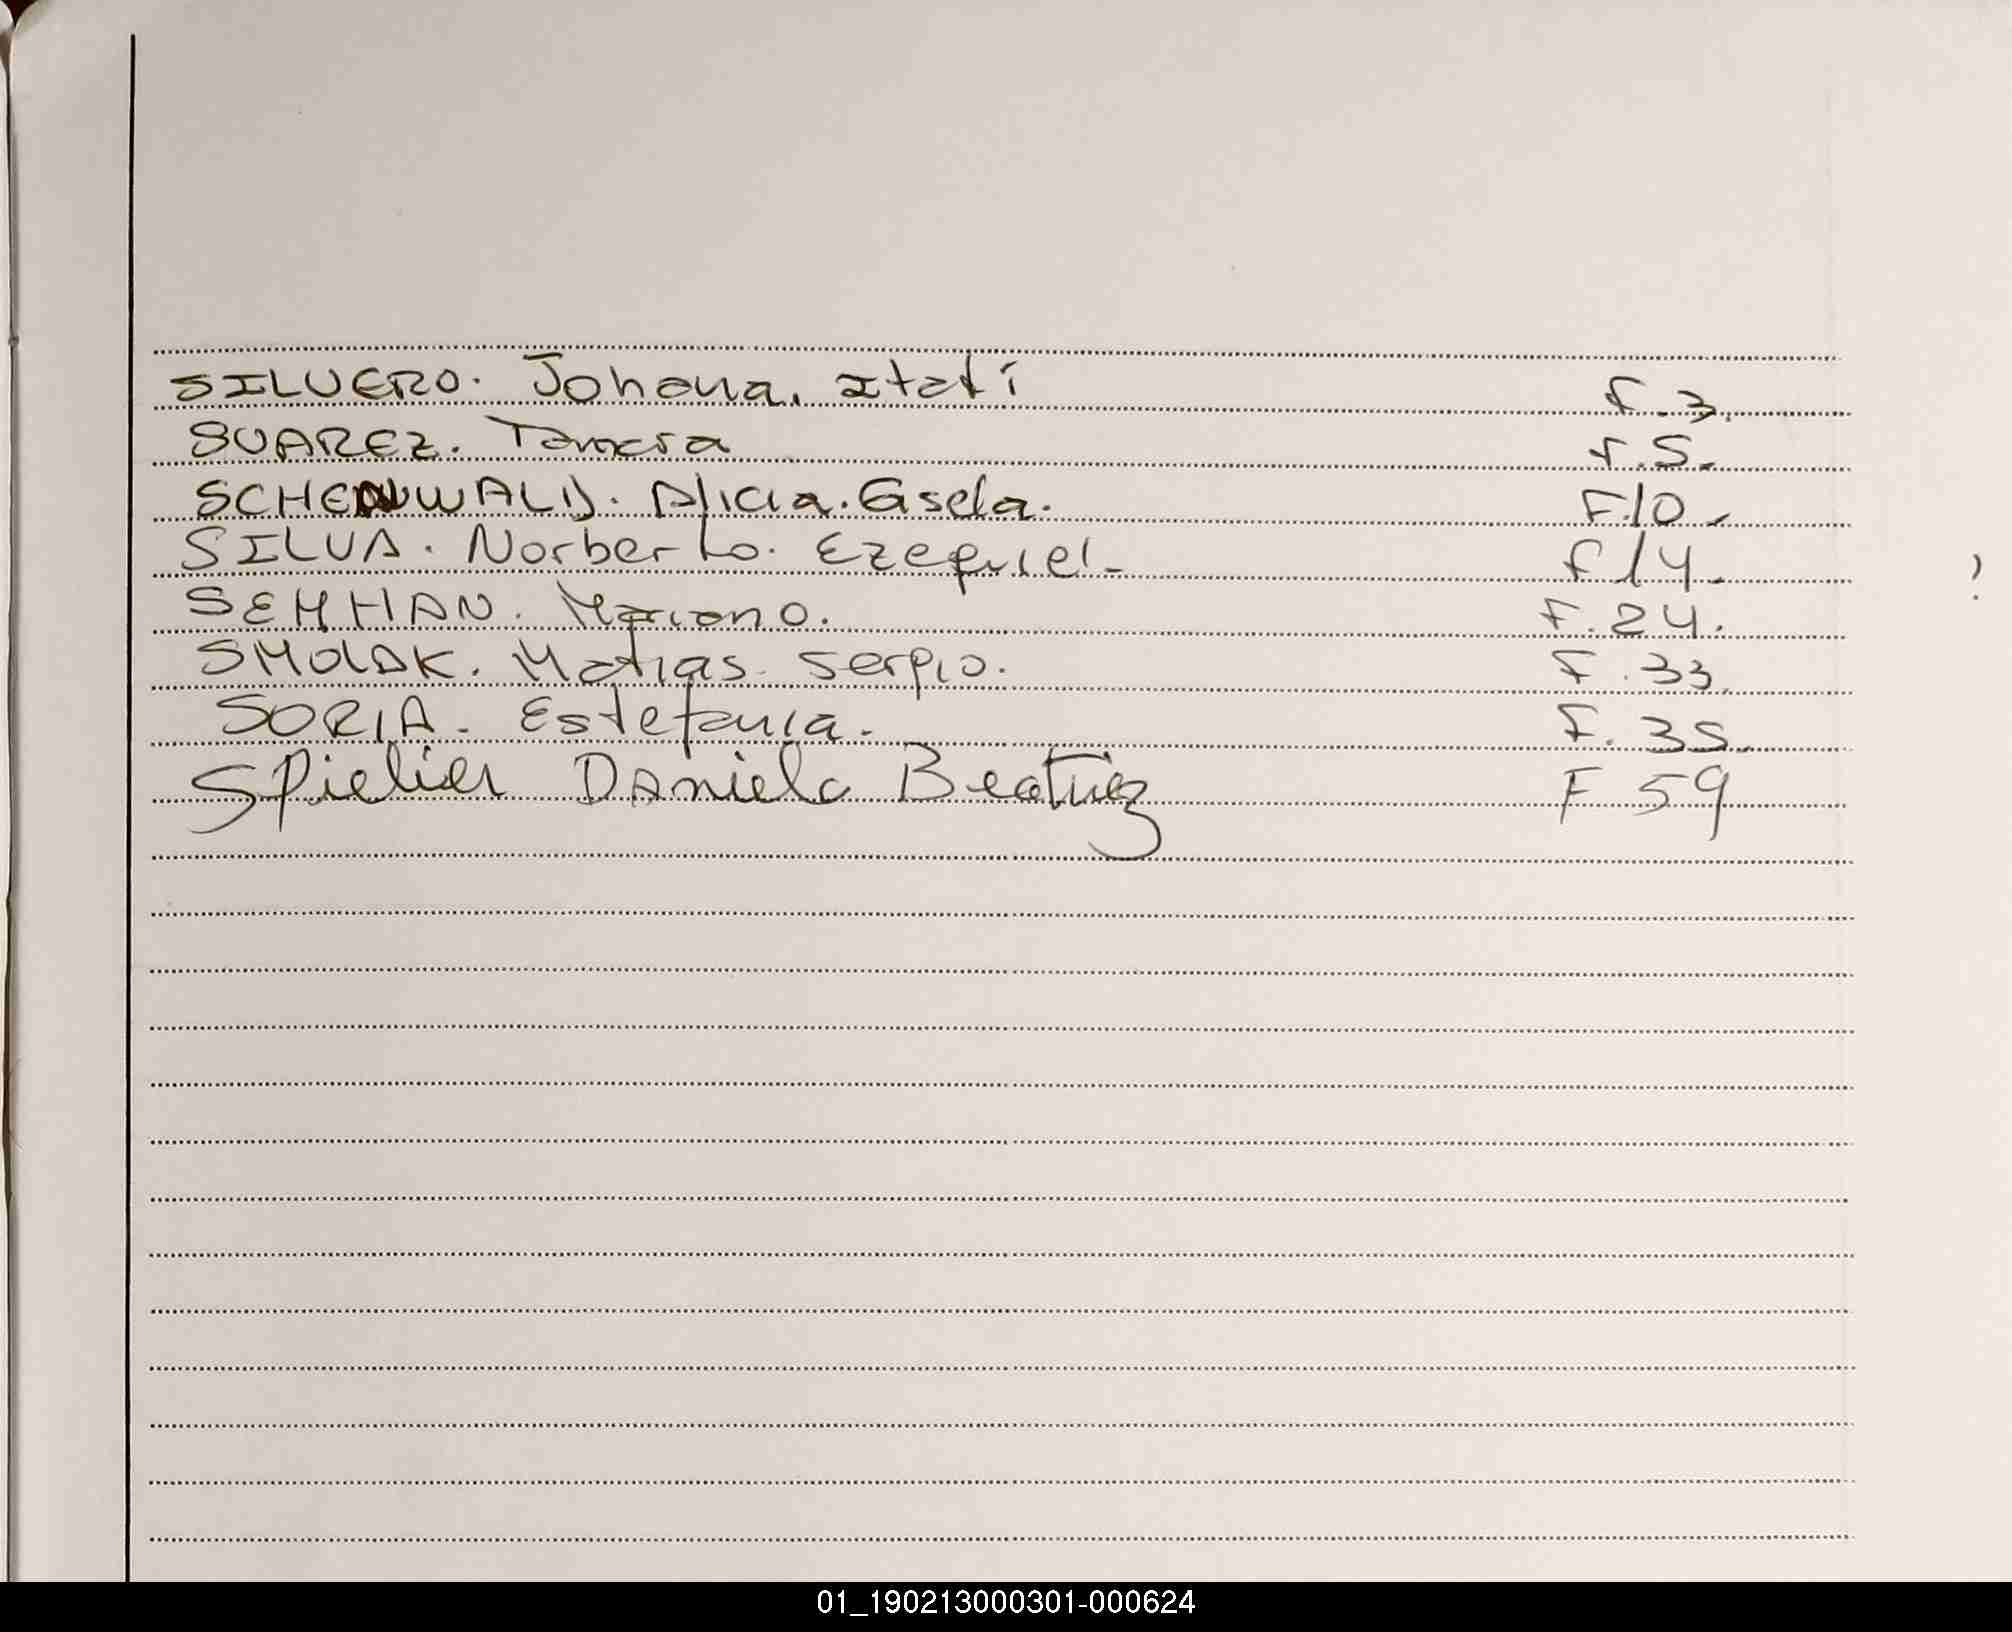 SILVERO. Johana. Itatí F.3.
SUAREZ. Tamara F.5.
SCHENWALD. Alicia. Gisela. F.10.
SILVA. Norberto. Ezequiel. F14.
SEMHAN. Mariano. F.24.
SMOLAK. Matias. Sergio. F.33.
SORIA. Estefania. F.35.
SPielier DANiela Beatriz F 59
01_190213000301-000624